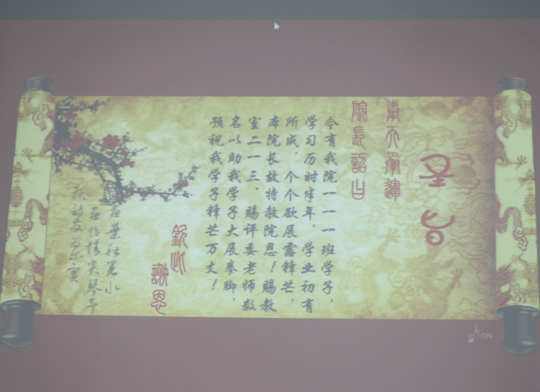 圣旨
奉天承运
院长诏曰
今有我院一一一班学子，
学习历时半年，学业初有
所成，个个欲展露锋芒，
本院长故特教院恩！赐教
室二一三、赐评委老师数
名以助我学子大展拳脚，
预祝我学子锋芒万丈！
钦此
谢恩